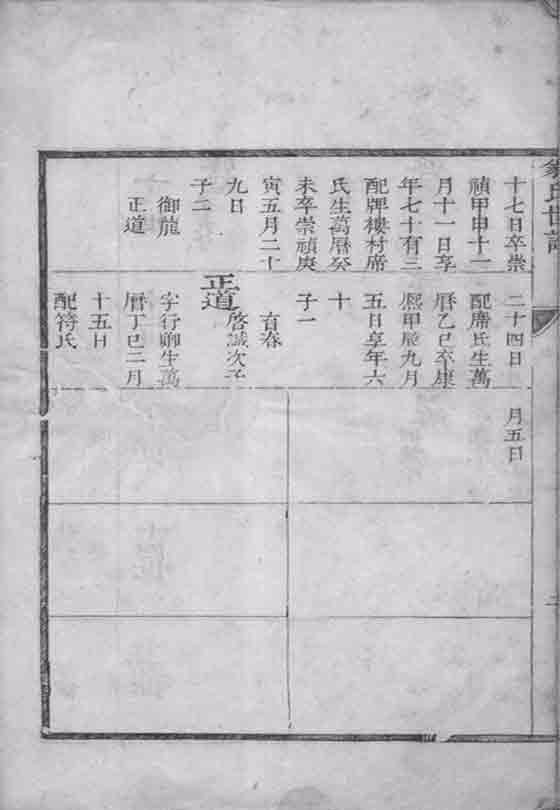 十七日卒崇
禎甲申十一
月十一日享
年七十有三
配牌樓村席
氏生萬曆癸
未卒崇禎庚
寅五月二十
九日
子二
御龍
正道
二十四日
配席氏生萬
曆乙巳卒康
熙甲辰九月
五日享年六
十
子一
有春
正道
啓誠次子
字行卿生萬
曆丁巳二月
十五日
配符氏
月五日